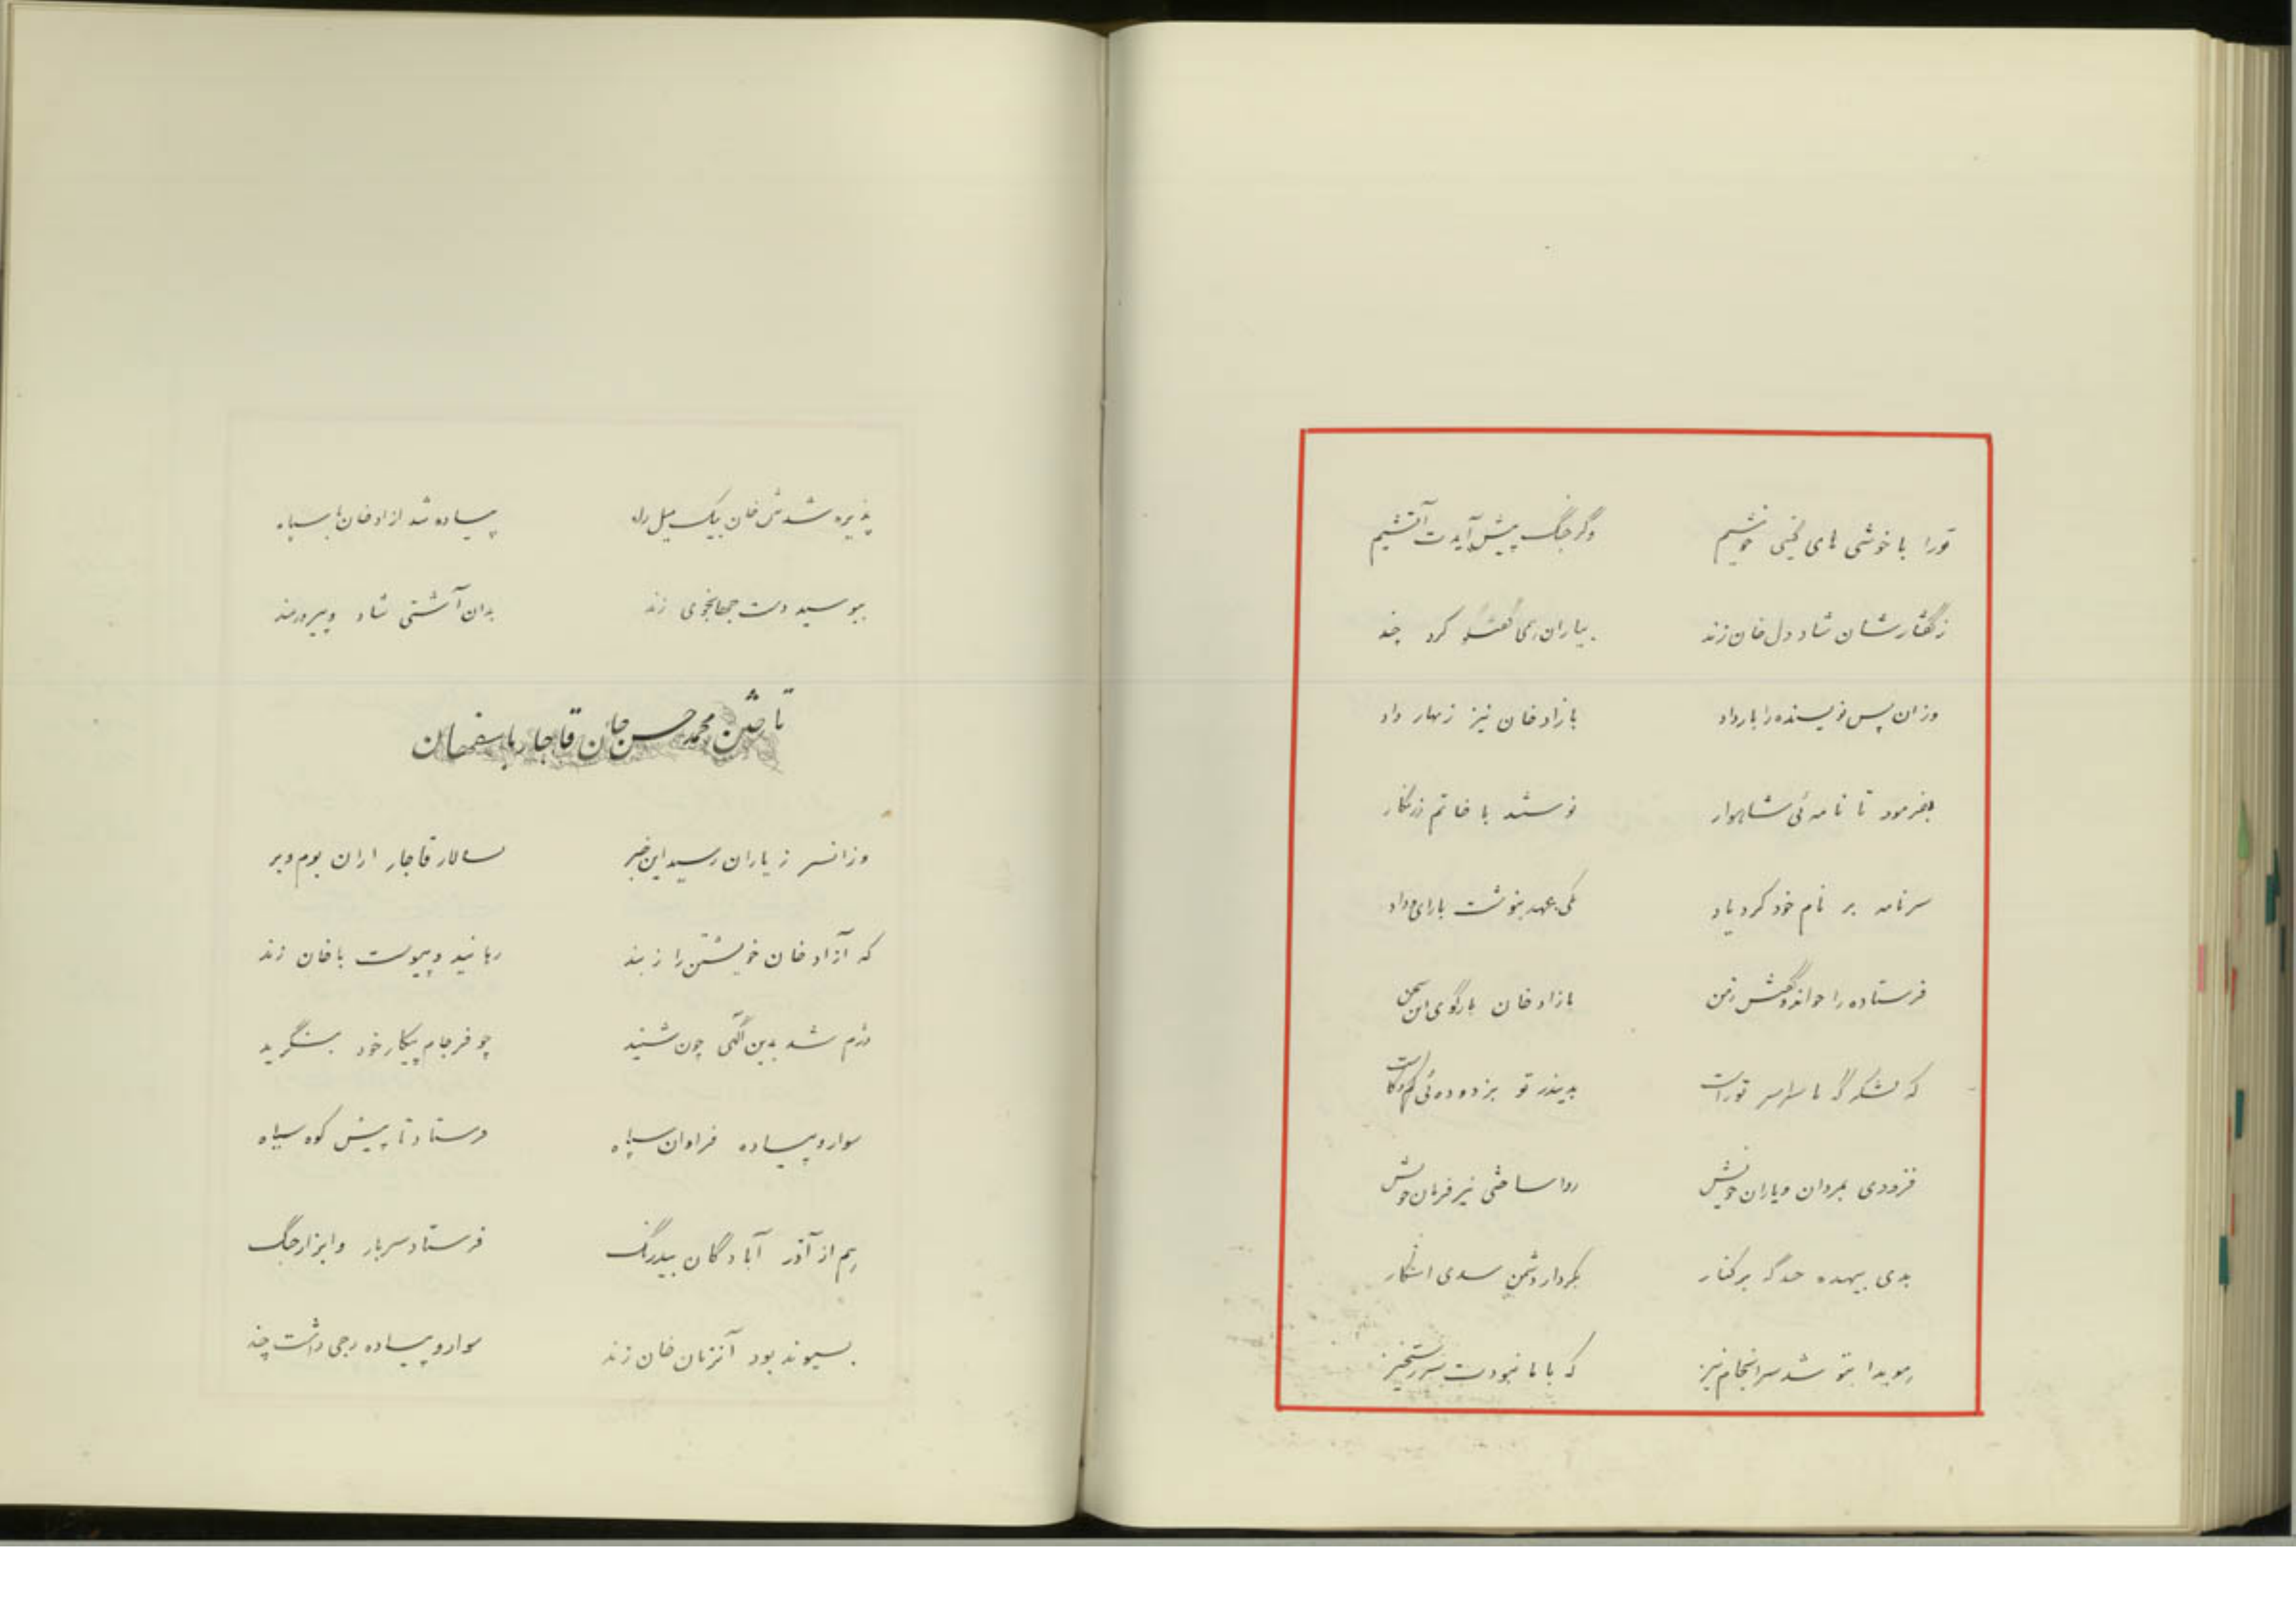 تورا با خوشی های گیتی خوشیم وگر جنگ پیش آیدت آتشیم
ز گفتارشان شاد دل خان زند بیاران همی گفتگو کرد چند
وزان پس نویسنده را بار داد بازاد خان نیز زنهار داد
بفرمود تا نامه ئی شاهوار نوشتند با خاتم زرنگار
سرنامه بر نام خود کرد یاد یکی عهد بنوشت با رای و داد
فرستاده را خواند و گفتش زمن بازاد خان بازگوی این سخن
که لشکرگه ما سراسر تو راست بدیندر تو بزدوده ئی کم و کاست
فزودی بمردان و یاران خویش روا ساختی نیز فرمان خویش
بدی بیهده جد که برکنار بکردار دشمن شدی آشکار
هویدا بتو شد سرانجام نیز که با ما نبودت سر رستخیز
پذیره شدش خان بیک میل راه پیاده شد ازاد خان با سپاه
ببوسید دست جهانجوی زند بدان آشتی شاد و پیروزمند
تاختن محمد حسن خان قاجار باسفهان
وزانسر ز یاران رسید این خبر بسالار قاجار ازان بوم و بر
که آزاد خان خویشتن را ز بند رهانید و پیوست با خان زند
دژم شد بدین آگهی چون شنید چو فرجام پیکار خود بنگرید
سوار و پیاده فراوان سپاه فرستاد تا پیش کوه سیاه
هم از آذر آبادگان بیدرنگ فرستاد سرباز و ابزار جنگ
بسیوند بود آنزمان خان زند سوار و پیاده رجی داشت چند